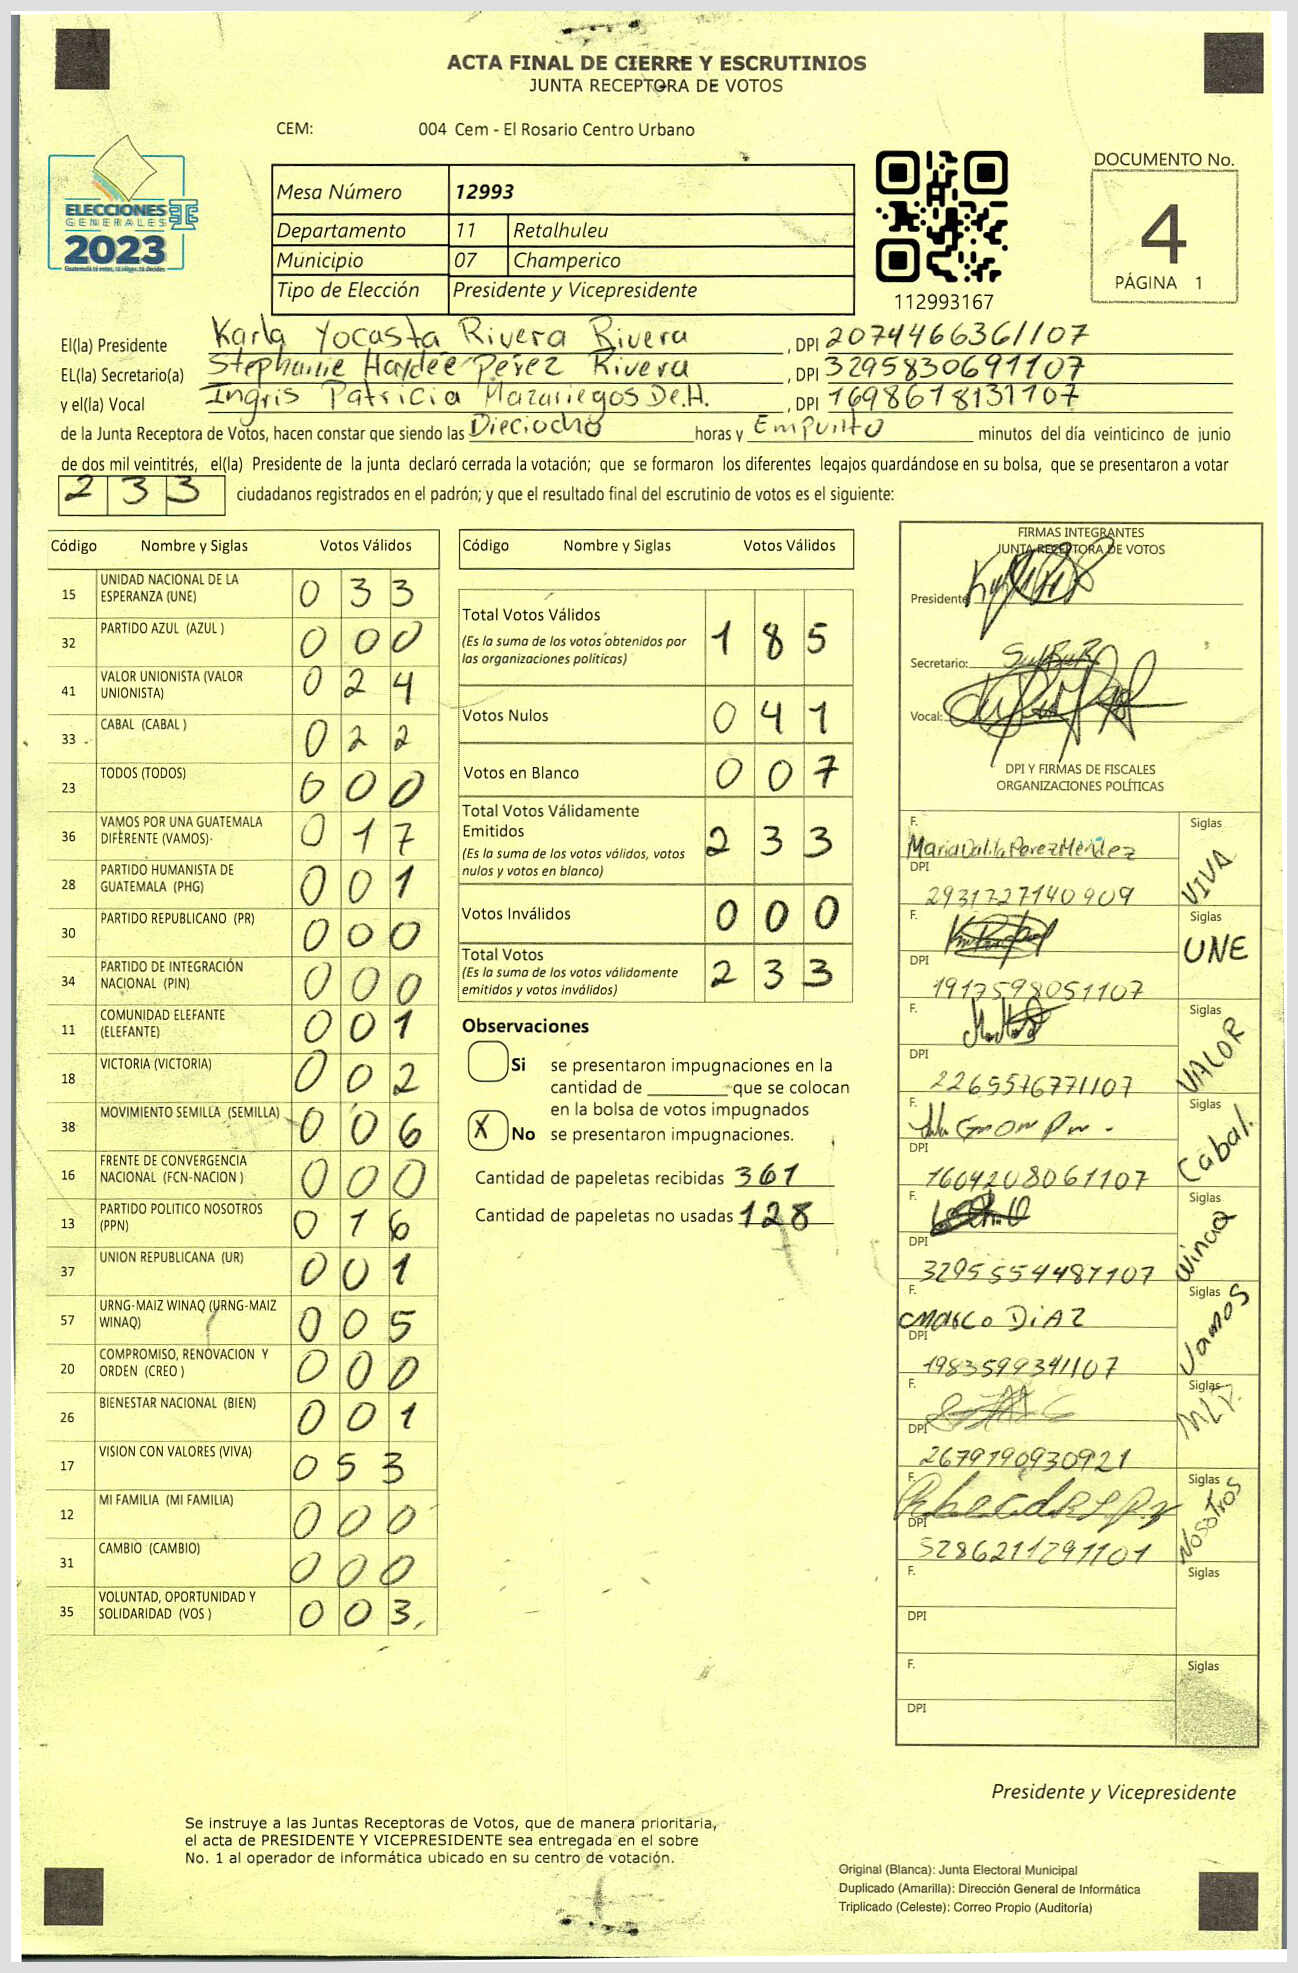 ACTA FINAL DE CIERRE Y ESCRUTINIOS
JUNTA RECEPTORA DE VOTOS
CEM: 004 Cem - El Rosario Centro Urbano
ELECCIONES
GENERALES
2023
Mesa Número 12993
Departamento 11 Retalhuleu
Municipio 07 Champerico
Tipo de Elección Presidente y Vicepresidente
112993167
DOCUMENTO No.
4
PÁGINA 1
El(la) Presidente Karla Yocasta Rivera Rivera , DPI 2074466361107
EL(la) Secretario(a) Stephanie Haydeé Pérez Rivera , DPI 3295830691107
y el(la) Vocal Ingris Patricia Mazariegos De.H. , DPI 1698618131107
de la Junta Receptora de Votos, hacen constar que siendo las Dieciocho horas y Empunto minutos del día veinticinco de junio
de dos mil veintitrés, el(la) Presidente de la junta declaró cerrada la votación; que se formaron los diferentes legajos guardándose en su bolsa, que se presentaron a votar
233 ciudadanos registrados en el padrón; y que el resultado final del escrutinio de votos es el siguiente:
Código Nombre y Siglas Votos Válidos
15 UNIDAD NACIONAL DE LA ESPERANZA (UNE) 0 3 3
32 PARTIDO AZUL (AZUL ) 0 0 0
41 VALOR UNIONISTA (VALOR UNIONISTA) 0 2 4
33 CABAL (CABAL ) 0 2 2
23 TODOS (TODOS) 0 0 0
36 VAMOS POR UNA GUATEMALA DIFERENTE (VAMOS) 0 1 7
28 PARTIDO HUMANISTA DE GUATEMALA (PHG) 0 0 1
30 PARTIDO REPUBLICANO (PR) 0 0 0
34 PARTIDO DE INTEGRACIÓN NACIONAL (PIN) 0 0 0
11 COMUNIDAD ELEFANTE (ELEFANTE) 0 0 1
18 VICTORIA (VICTORIA) 0 0 2
38 MOVIMIENTO SEMILLA (SEMILLA) 0 0 6
16 FRENTE DE CONVERGENCIA NACIONAL (FCN-NACION ) 0 0 0
13 PARTIDO POLITICO NOSOTROS (PPN) 0 1 6
37 UNION REPUBLICANA (UR) 0 0 1
57 URNG-MAIZ WINAQ (URNG-MAIZ WINAQ) 0 0 5
20 COMPROMISO, RENOVACION Y ORDEN (CREO ) 0 0 0
26 BIENESTAR NACIONAL (BIEN) 0 0 1
17 VISION CON VALORES (VIVA) 0 5 3
12 MI FAMILIA (MI FAMILIA) 0 0 0
31 CAMBIO (CAMBIO) 0 0 0
35 VOLUNTAD, OPORTUNIDAD Y SOLIDARIDAD (VOS ) 0 0 3
Código Nombre y Siglas Votos Válidos
Total Votos Válidos 1 8 5
(Es la suma de los votos obtenidos por
las organizaciones políticas)
Votos Nulos 0 4 1
Votos en Blanco 0 0 7
Total Votos Válidamente
Emitidos 2 3 3
(Es la suma de los votos válidos, votos
nulos y votos en blanco)
Votos Inválidos 0 0 0
Total Votos 2 3 3
(Es la suma de los votos válidamente
emitidos y votos inválidos)
Observaciones
Si se presentaron impugnaciones en la
cantidad de ________ que se colocan
en la bolsa de votos impugnados
X No se presentaron impugnaciones.
Cantidad de papeletas recibidas 361
Cantidad de papeletas no usadas 128
FIRMAS INTEGRANTES
JUNTA RECEPTORA DE VOTOS
Presidente:
Secretario:
Vocal:
DPI Y FIRMAS DE FISCALES
ORGANIZACIONES POLÍTICAS
F. Maria Dalila Perez Méndez Siglas VIVA
DPI 2931727140909
F. Siglas UNE
DPI 1917598051107
F. Siglas VALOR
DPI 2265576771107
F. Siglas Cabal.
DPI 1604208061107
F. Siglas Winaq
DPI 3295554487107
F. Marco DiAZ Siglas Vamos
DPI 1983599341107
F. Siglas MLP.
DPI 2679190930921
F. Siglas NOSOTROS
DPI 5286211291101
F. Siglas
DPI
F. Siglas
DPI
Presidente y Vicepresidente
Se instruye a las Juntas Receptoras de Votos, que de manera prioritaria,
el acta de PRESIDENTE Y VICEPRESIDENTE sea entregada en el sobre
No. 1 al operador de informática ubicado en su centro de votación.
Original (Blanca): Junta Electoral Municipal
Duplicado (Amarilla): Dirección General de Informática
Triplicado (Celeste): Correo Propio (Auditoría)